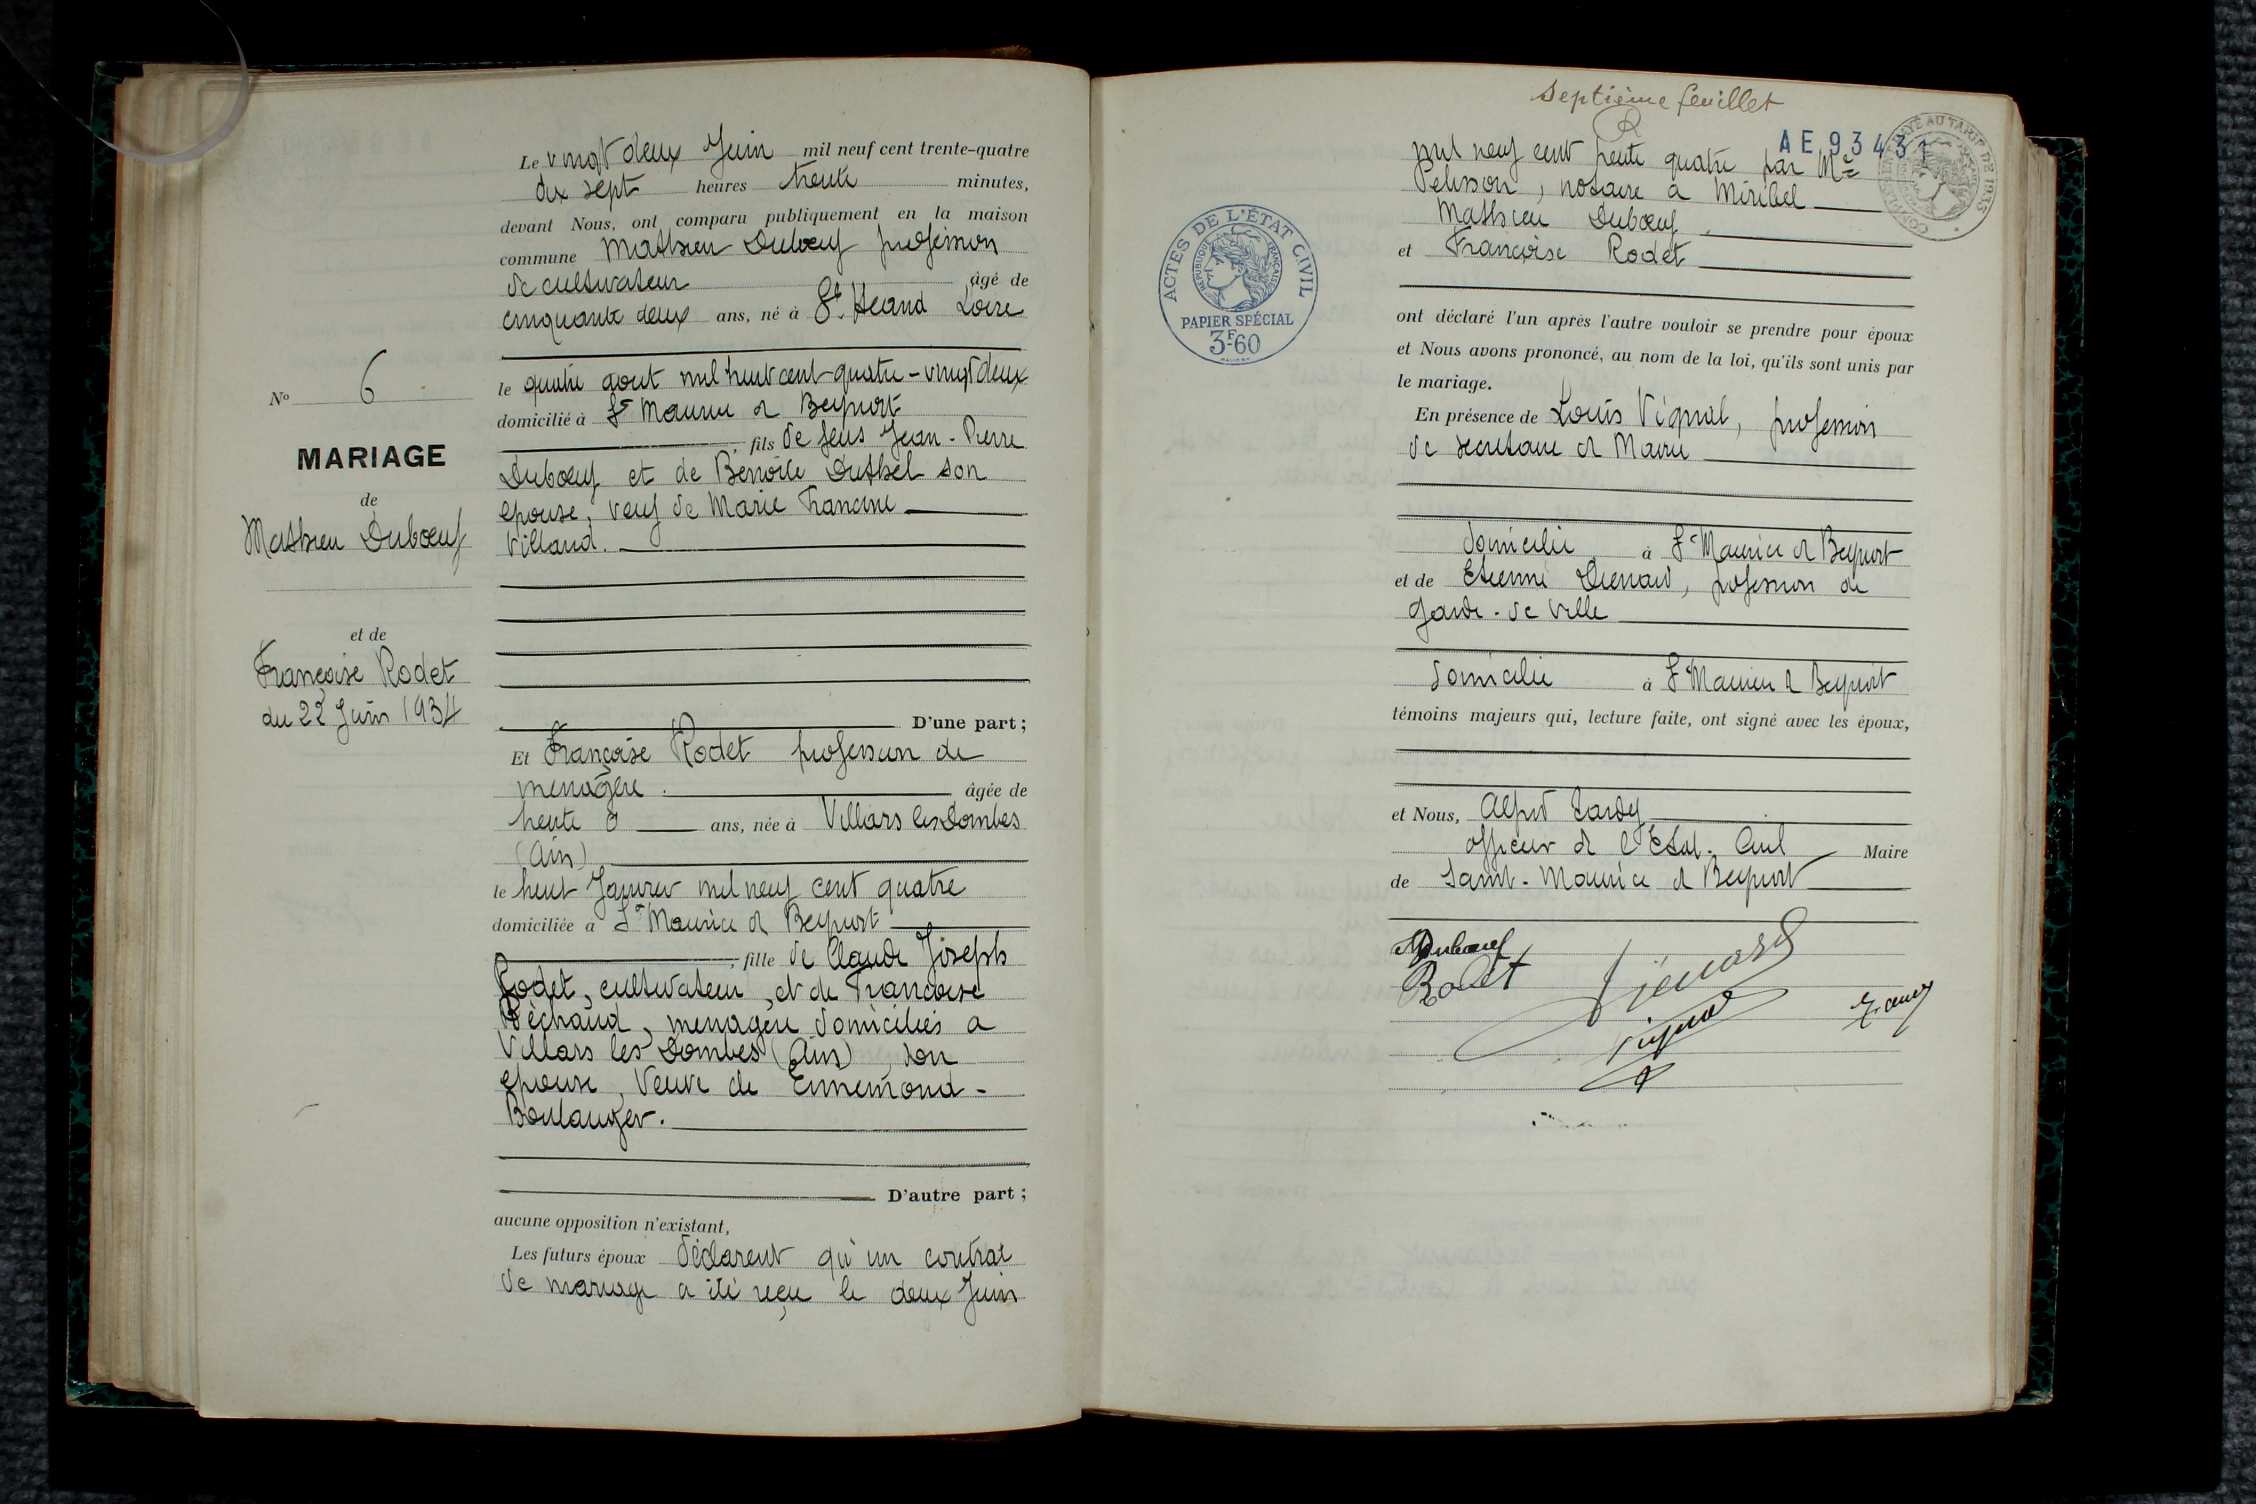 Le vingt deux Juin mil neuf cent trente-quatre
dix sept heures trente minutes,
devant Nous, ont comparu publiquement en la maison
commune Mathieu Dubœuf profession
de cultivateur âgé de
cinquante deux ans, né à St. Heand Loire
le quatre aout mil huit cent quatre-vingt deux
domicilié à St Maurice de Beynost
fils de feus Jean-Pierre
Dubœuf et de Benoite Duthel son
épouse, veuf de Marie Francine
Villand.
No 6
MARIAGE
de
Mathieu Dubœuf
et de
Françoise Rodet
du 22 Juin 1934
D'une part;
Et Françoise Rodet profession de
menagère. âgée de
trente ans, née à Villars les Dombes
(Ain)
le huit Janvier mil neuf cent quatre
domiciliée à St Maurice de Beynost
, fille de Claude Joseph
Rodet, cultivateur, et de Francoise
Béchaud, menagère domiciliés a
Villars les Dombes (Ain), son
épouse, Veuve de Ennemond-
Boulanger.
D'autre part;
aucune opposition n'existant,
Les futurs époux déclarent qu'un contrat
de mariage a été reçu le deux Juin
Septième feuillet
AE 93431
mil neuf cent trente quatre par Me
Pelisson, notaire à Miribel
Mathieu Dubœuf
et Françoise Rodet
ACTES DE L'ÉTAT CIVIL
RÉPUBLIQUE FRANÇAISE
PAPIER SPÉCIAL
3F60
ont déclaré l'un après l'autre vouloir se prendre pour époux
et Nous avons prononcé, au nom de la loi, qu'ils sont unis par
le mariage.
En présence de Louis Vignal, profession
de secretaire de Mairie
domicilié à St Maurice de Beynost
et de Etienne Dienard, profession de
Garde-de Ville
domicilié à St Maurice de Beynost
témoins majeurs qui, lecture faite, ont signé avec les époux,
et Nous, Alfred Tardy
officier de l'Etat-Civil Maire
de Saint-Maurice de Beynost
Dubœuf
Rodet